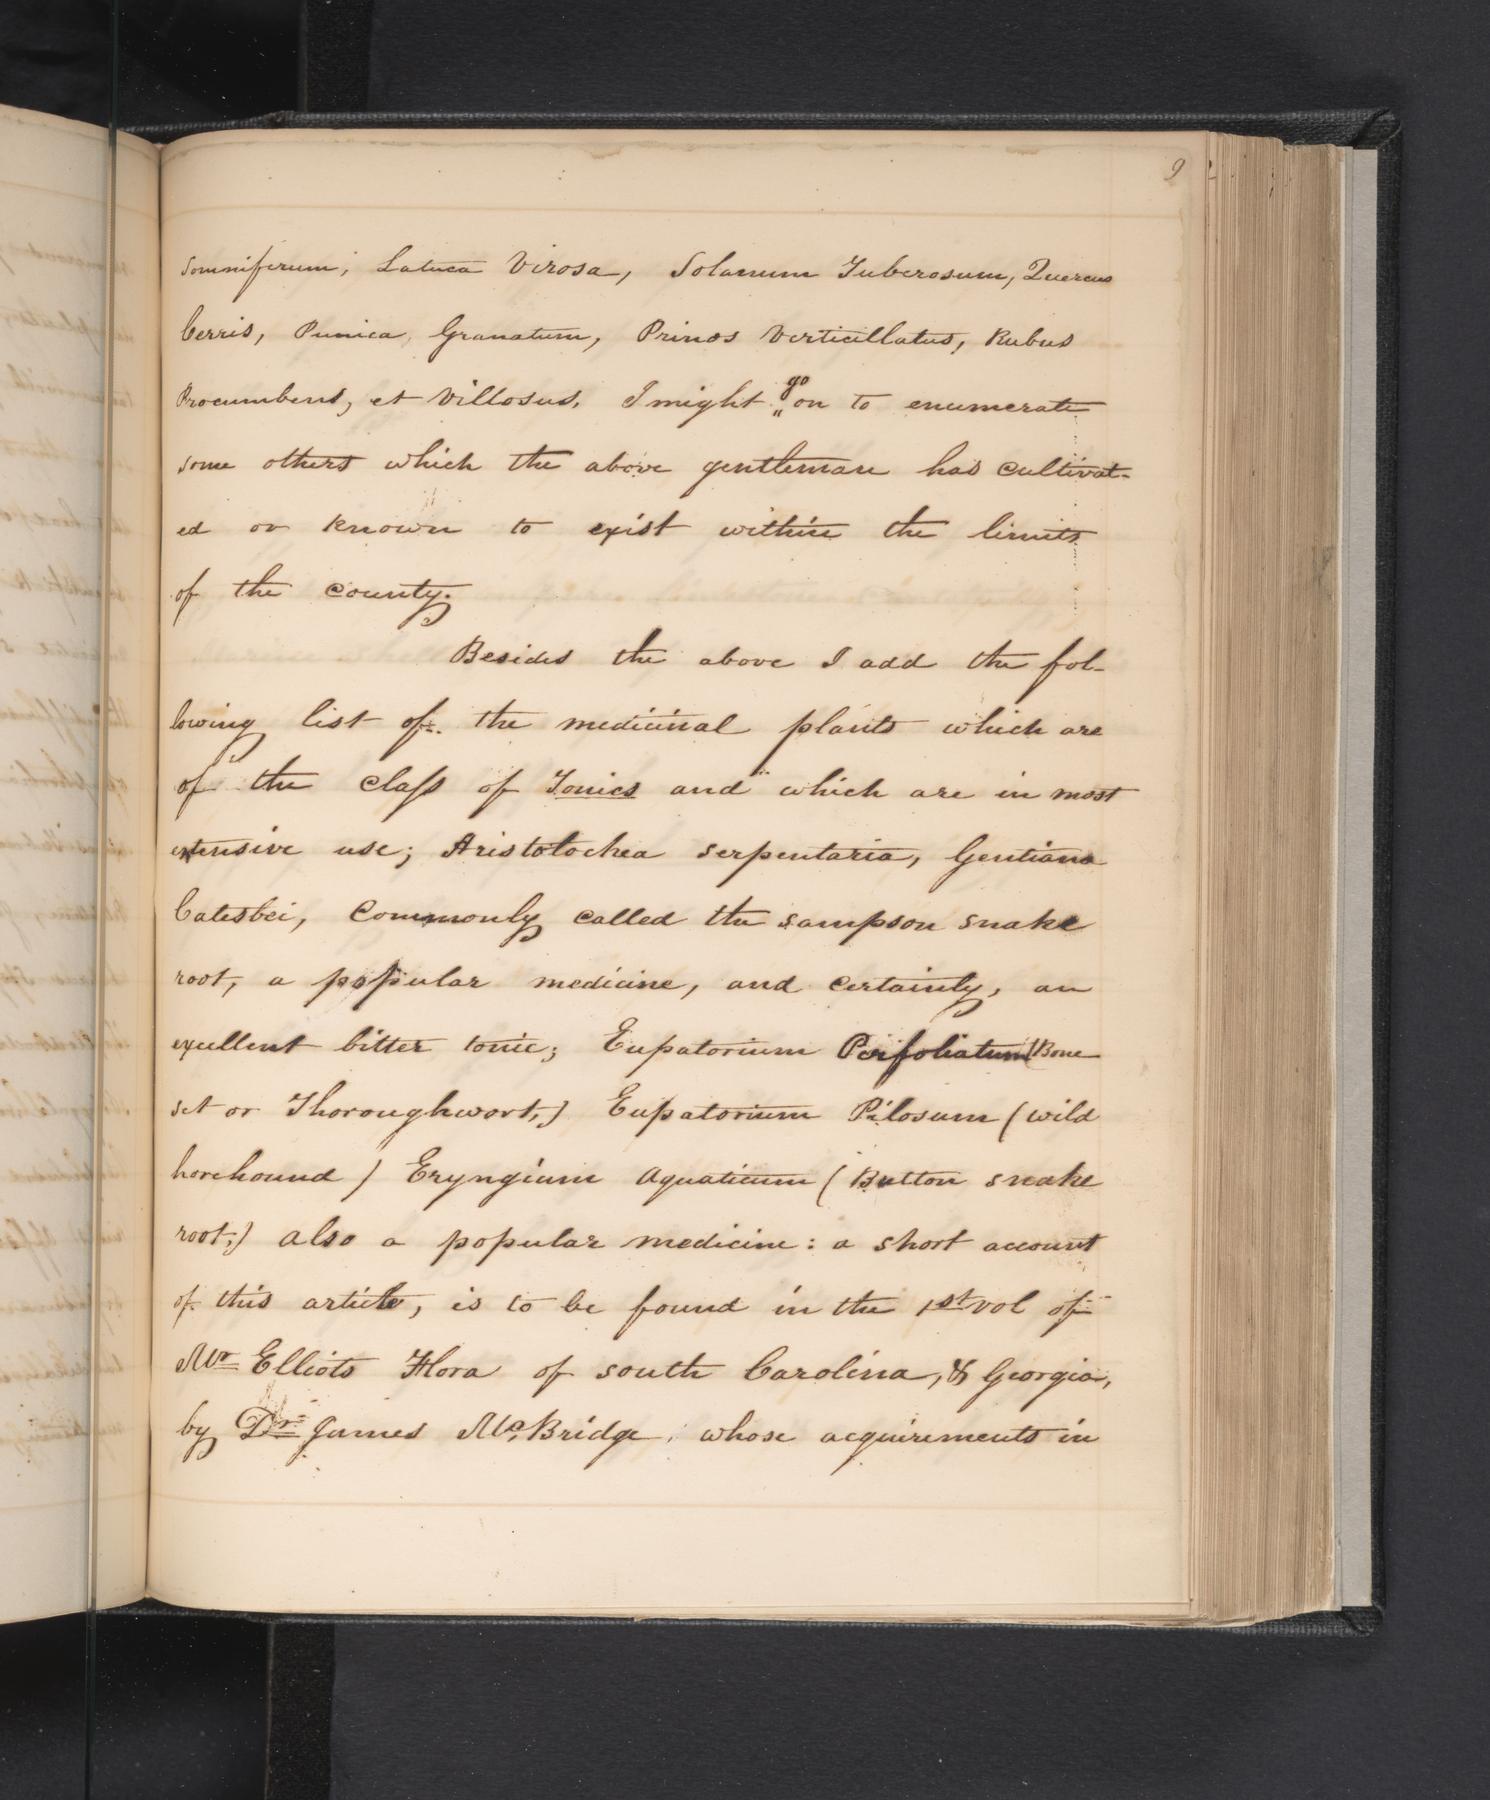 9
somniferum; Latuca Virosa, Solanum Tuberosum, Quercus
Cerris, Punica, Granatum, Prinos Verticillatus, Rubus
Procumbens, et Villosus. I might go on to enumerate
some others which the above gentleman has cultivat-
ed or known to exist within the limits
of the county.
Besides the above I add the fol-
lowing list of the medicinal plants which are
of the class of Tonics and which are in most
extensive use; Aristolochea serpentaria, Gentiana
Catesbei, Commonly called the sampson snake
root, a popular medicine, and certainly, an
excellent bitter tonic; Eupatorium Perfoliatum (Bone
set or Thoroughwort,) Eupatorium Pilosum (wild
horehound) Eryngium Aquaticum (Button snake
root;) also a popular medicine: a short account
of this article, is to be found in the 1st vol of
Mr Elliots Flora of south Carolina, & Georgia,
by Dr. James McBridge, whose acquirements in